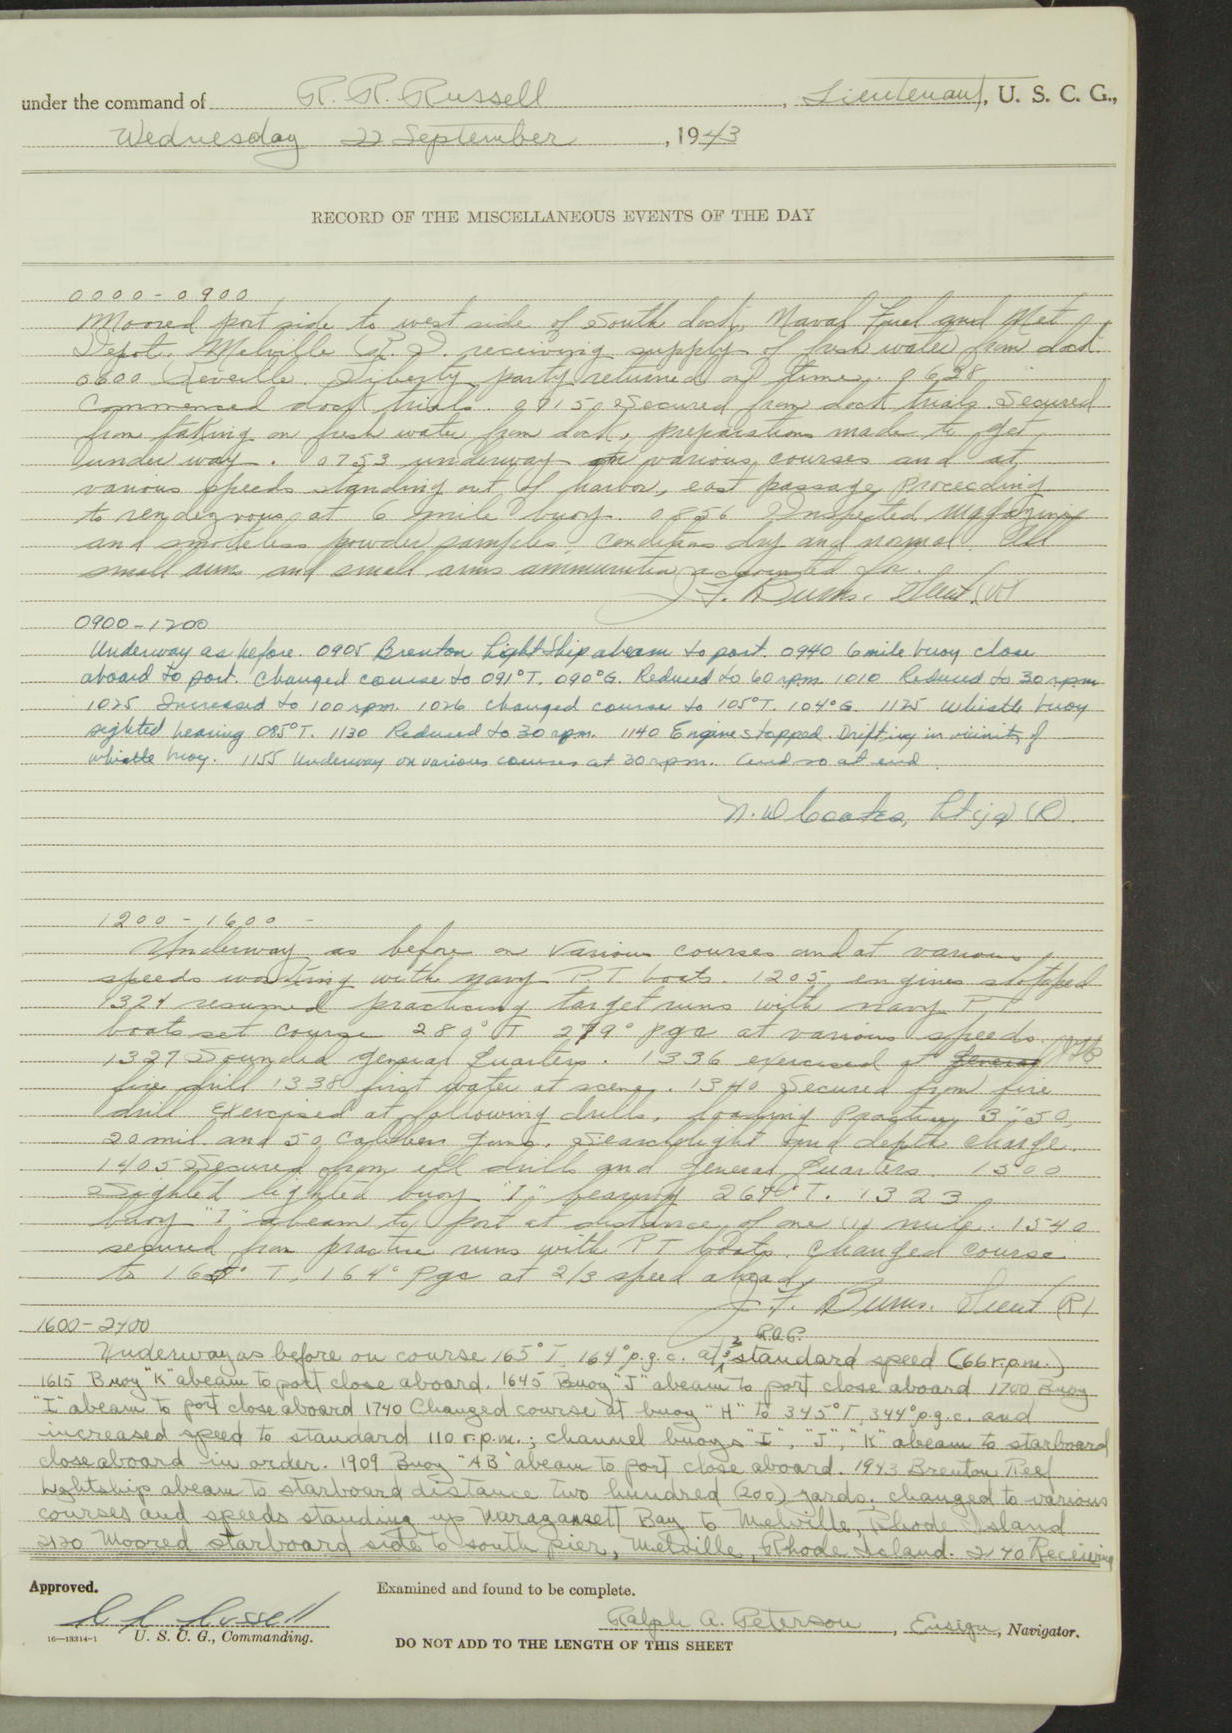 under the command of R. R. Russell, Lieutenant, U. S. C. G.,
Wednesday 22 September, 1943
RECORD OF THE MISCELLANEOUS EVENTS OF THE DAY
0000-0900
Moored port side to west side of South dock, Naval Fuel and Net
Depot, Melville R. I. receiving supply of fresh water from dock.
0600 Reveille. Liberty party returned on time. 0628
Commenced dock trials. 0715 Secured from dock trials. Secured
from taking on fresh water from dock, preparations made to get
under way. 0753 underway on various courses and at
various speeds standing out of harbor, east passage, proceeding
to rendezvous at 6 mile buoy. 0856 Inspected magazines
and smokeless powder samples, conditions dry and normal. All
small arms and small arms ammunition accounted for.
J. F. Burns. Lieut (R)
0900-1200
Underway as before. 0905 Brenton Lightship abeam to port. 0940 6 mile buoy close
aboard to port. Changed course to 091°T. 090°G. Reduced to 60 rpm. 1010 Reduced to 30 rpm
1025 Increased to 100 rpm. 1026 Changed course to 105°T. 104°G. 1125 Whistle buoy
sighted bearing 085°T. 1130 Reduced to 30 rpm. 1140 Engine stopped. Drifting in vicinity of
whistle buoy. 1155 Underway on various courses at 30 rpm. And so at end.
N. W Coates, Lt(jg) (R).
1200-1600-
Underway as before on various courses and at various
speeds working with navy PT boats. 1205 engines stopped
1324 resumed practicing target runs with navy PT
boats set course 280° T 279° pgc at various speeds.
1327 Sounded general Quarters. 1336 exercised at general JFB
fire drill 1338 first water at scene. 1340 Secured from fire
drill Exercised at following drills, loading practice, 3"50,
20 mil. and 50 Caliber guns. Searchlight and depth charge.
1405 Secured from all drills and general Quarters. 1500
Sighted lighted buoy "I" bearing 264° T. 1323
buoy "I" abeam to port at distance of one (1) mile. 1540
secured from practice runs with PT boats. Changed course
to 165° T, 164° Pgc at 2/3 speed ahead.
J. F. Burns. Lieut (R)
1600-2400
R.A.P.
Underway as before on course 165°T, 164° p.g.c. at 2/3 standard speed (66 r.p.m.)
1615 Buoy "K" abeam to port close aboard. 1645 Buoy "J" abeam to port close aboard 1700 Buoy
"I" abeam to port close aboard 1740 Changed course at buoy "H" to 345°T, 344° p.g.c. and
increased speed to standard 110 r.p.m.; channel buoys "I", "J", "K" abeam to starboard
close aboard in order. 1909 Buoy "AB" abeam to port close aboard. 1943 Brenton Reef
Lightship abeam to starboard distance two hundred (200) yards; changed to various
courses and speeds standing up Naragansett Bay to Melville, Rhode Island
2120 Moored starboard side to south pier, Melville, Rhode Island. 2140 Receiving
Approved.
Examined and found to be complete.
R R Russell
U. S. C. G., Commanding.
Ralph A. Peterson, Ensign, Navigator.
16—13314-1
DO NOT ADD TO THE LENGTH OF THIS SHEET